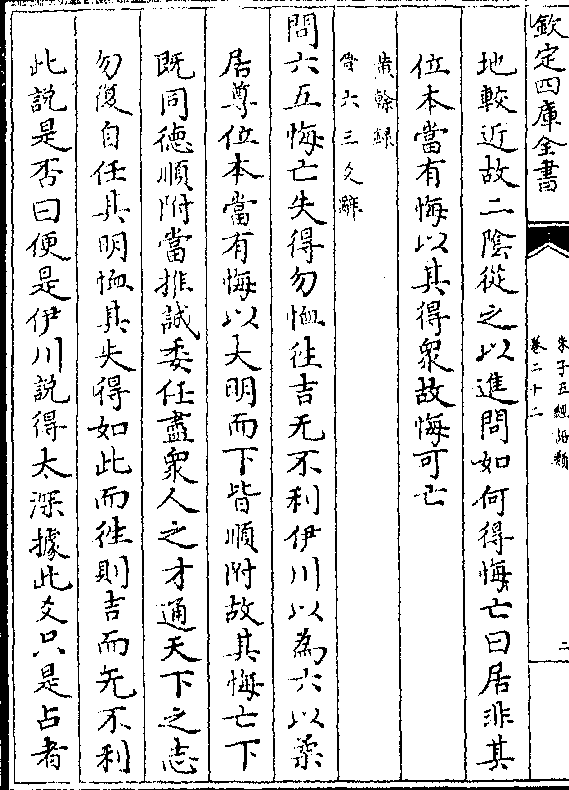 欽定四庫全書
朱子五經語類
卷二十二
二
地較近故二陰從之以進問如何得悔亡曰居非其
位本當有悔以其得衆故悔可亡
黃榦録
晉六三爻辭
問六五悔亡失得勿恤往吉无不利伊川以為六以柔
居尊位本當有悔以大明而下皆順附故其悔亡下
既同德順附當推誠委任盡衆人之才通天下之志
勿復自任其明恤其失得如此而往則吉而无不利
此說是否曰便是伊川說得太深據此爻只是占者